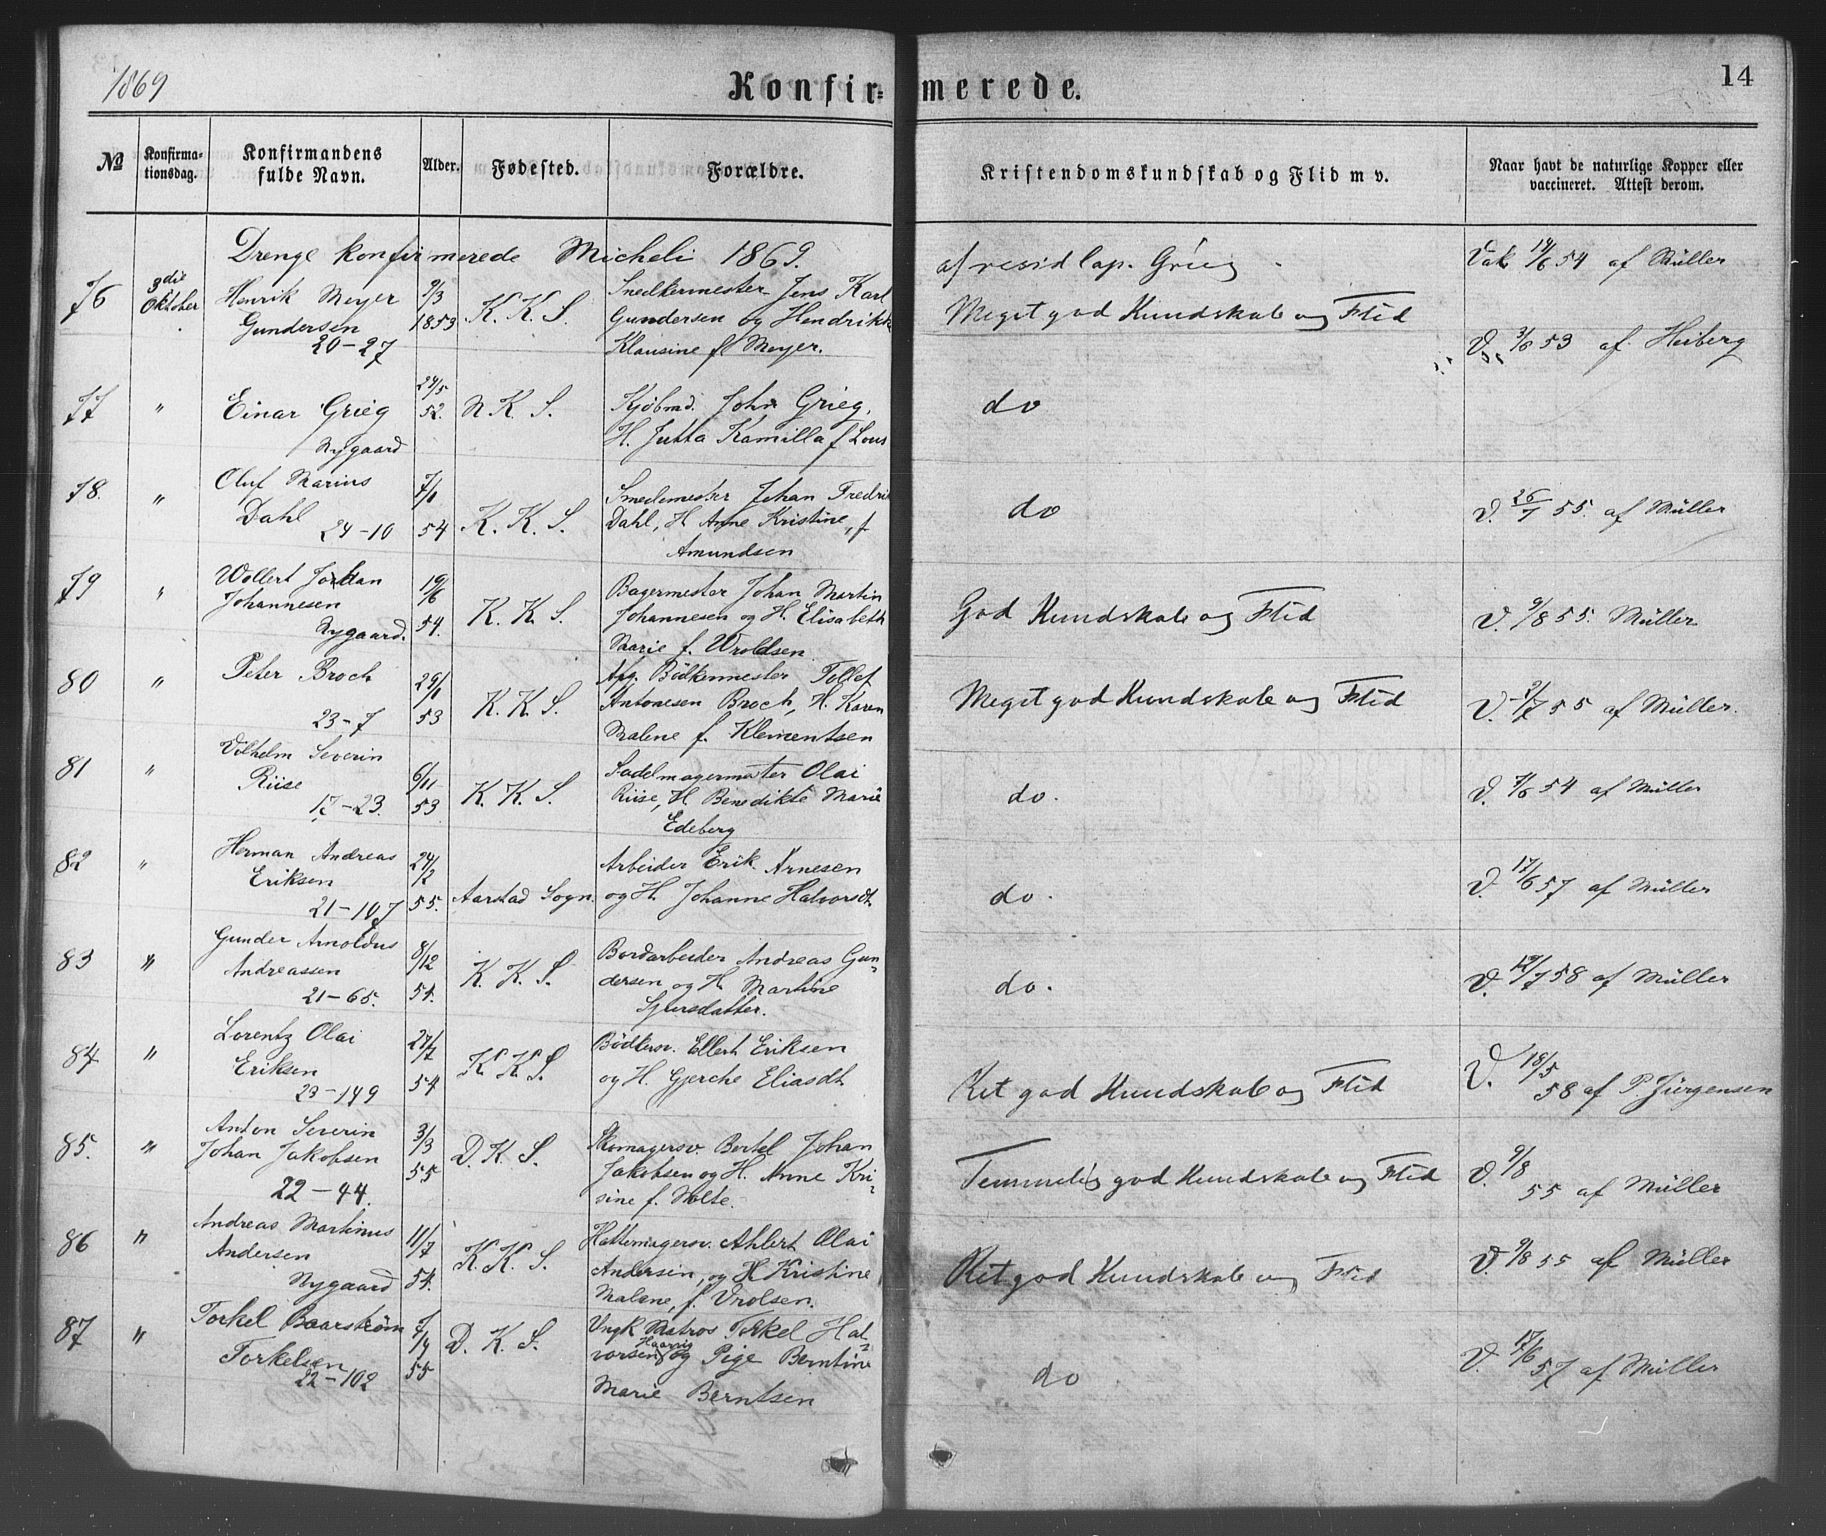 1869
Konfirmerede.
14
No
Konfirma-tionsdag.
Konfirmandens fulde Navn.
Alder.
Fødested.
Forældre.
Kristendomskundskab og Flid m v.
Naar havt de naturlige Kopper eller vaccineret. Attest derom.
Drenge konfirmerede Micheli 1869.
af resid Cap. Grieg
76 3die Oktober Henrik Meyer Gundersen 20-27
9/3 1853 K. K. S.
Snedkermester Jens Karl
Gundersen og Hendrikke
Klausine f. Meyer.
Meget god Kundskab og Flid
Vak 14/6 54 af Müller
77 " Einar Grieg Nygaard
24/5 52. N. K. S.
Kjøbmd. John Grieg,
H. Jutta Kamilla f Lous
do
V. 3/6 53 af Heiberg
78. " Oluf Marius Dahl 24-10
7/1 54 K. K. S.
Smedemester Johan Fredrik
Dahl, H. Anne Kristine, f.
Amundsen
do
V. 26/7 55. af Müller
79 " Wollert Johan Johannesen Nygaard.
19/6 54. K. K. S.
Bagermester Johan Martin
Johannesen og H. Elisabeth
Marie f. Wroldsen
God Kundskab og Flid
V. 9/8 55. Müller
80 " Peter Broch 23-7
29/1 53 K. K. S.
Afg. Bødkermester Tollef
Antonesen Broch, H. Karen
Malene f. Klementsen
Meget god Kundskab og Flid
V. 2/7 55 af Müller.
81 " Vilhelm Severin Riise 17-23.
6/11 53 K. K. S.
Sadelmagermester Olai
Riise, H. Benedikte Marie
Edeberg
do.
V. 7/6 54 af Müller
82 " Herman Andreas Eriksen 21-107
24/2 55. Aarstad Sogn.
Arbeider Erik Arnesen
og H. Johanne Halvorsdt.
do.
V. 17/6 57 af Müller
83 " Gunder Arnoldus Andreassen 21-65.
8/12 54. K. K. S.
Bordarbeider Andreas Gun=
dersen og H. Martine
Sjursdatter.
do.
V. 19/7 58 af Müller
84 " Lorentz Olai Eriksen 23-149
27/7 54 K. K. S.
Bødkersv. Ellert Eriksen
og H. Gjerche Eliasdt.
Ret god Kundskab og Flid
V. 18/5 58 af P. Jürgensen
85. " Anton Severin Johan Jakobsen 22-44.
3/3 55 D. K. S.
Skomagersv. Bertel Johan
Jakobsen og H. Anne Kri=
sine f. Nolte.
Temmelig god Kundskab og Flid
V. 9/8 55 af Müller
86 " Andreas Martinus Andersen Nygaard
11/7 54. K. K. S.
Hattemagersv. Ahlert Olai
Andersen, og H. Kristine
Malene, f. Vrolsen.
Ret god Kundskab og Flid
V. 9/8 55 af Müller
87 " Torkel Baarstrøm Torkelsen 22-102
7/4 55 D. K. S.
Ungk. Matros Torkel Hal=
vorsen Haarvig og Pige Berntine
Marie Berntsen
do
V. 17/6 57 af Müller